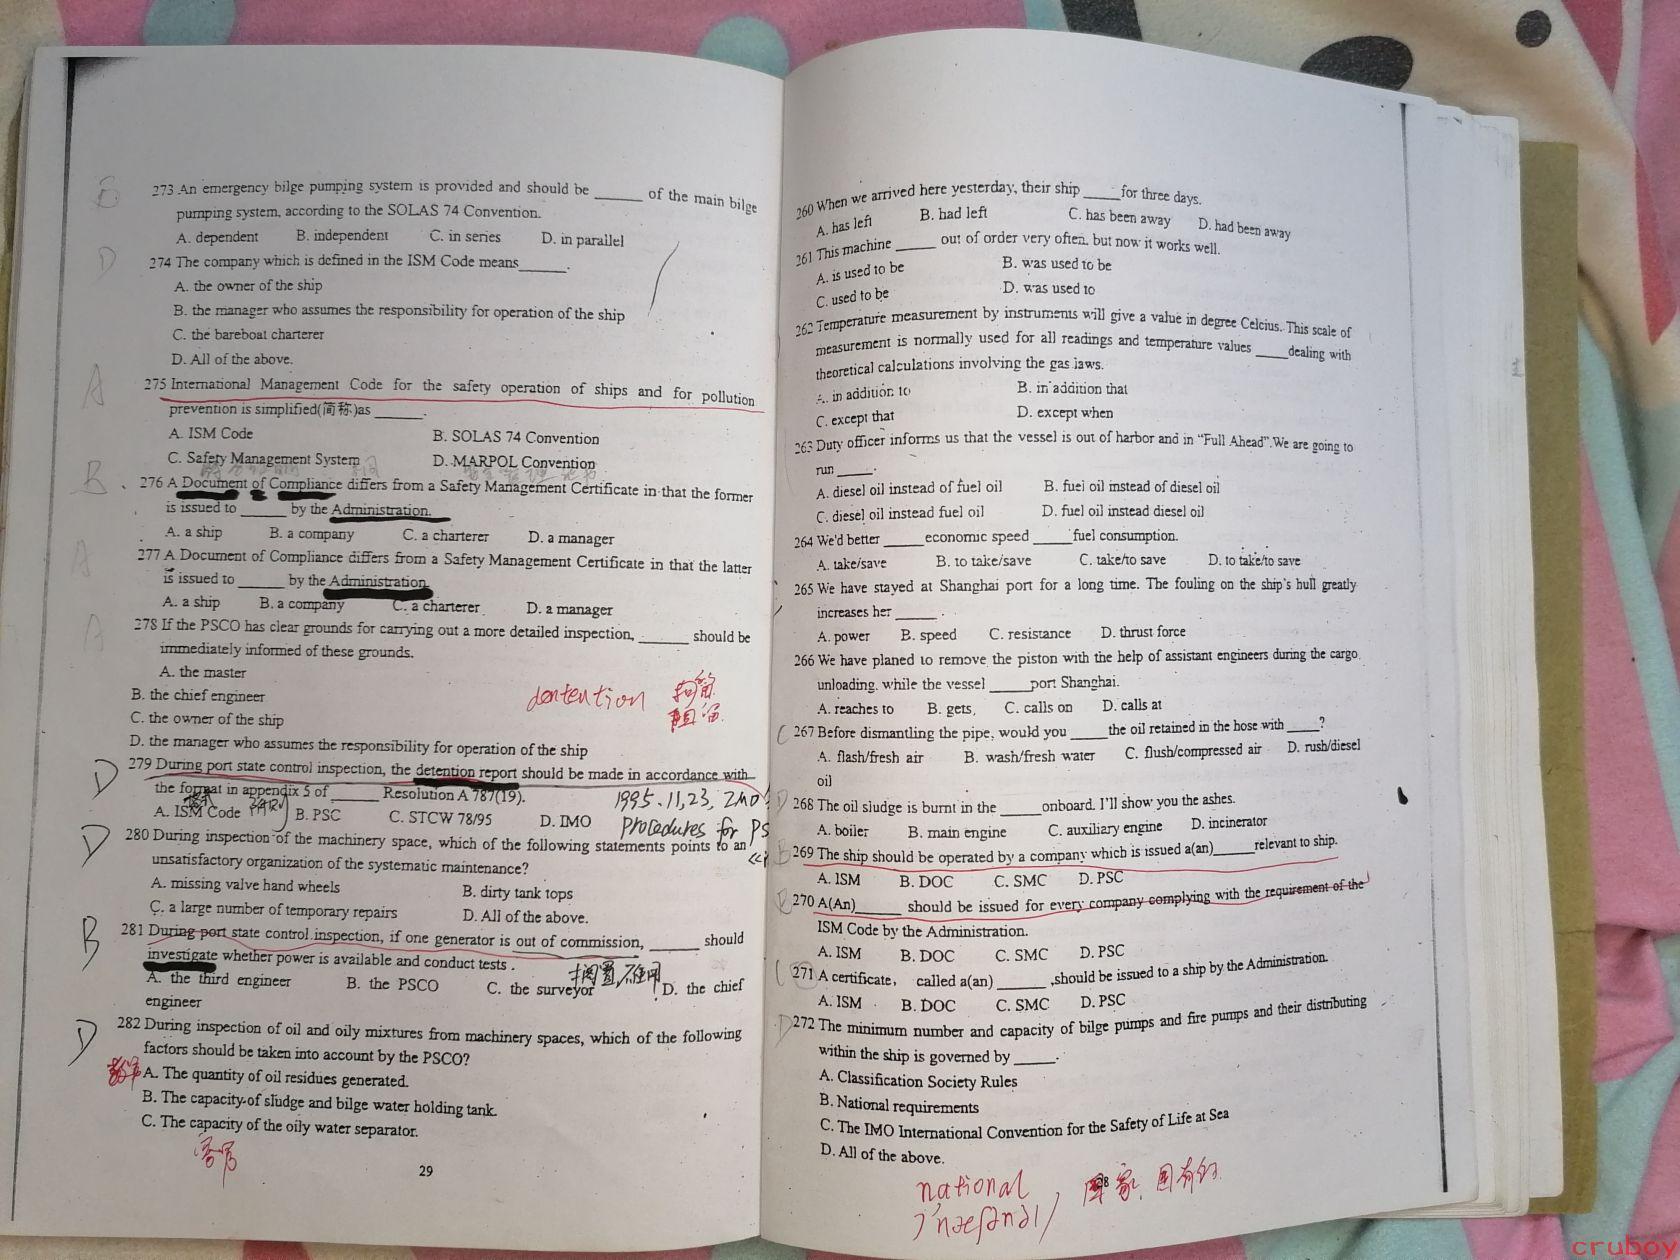 B
273 An emergency bilge pumping system is provided and should be ______ of the main bilge
pumping system, according to the SOLAS 74 Convention.
A. dependent B. independent C. in series D. in parallel
D
274 The company which is defined in the ISM Code means______.
A. the owner of the ship
B. the manager who assumes the responsibility for operation of the ship
C. the bareboat charterer
D. All of the above.
A
275 International Management Code for the safety operation of ships and for pollution
prevention is simplified(简称)as ______.
A. ISM Code B. SOLAS 74 Convention
C. Safety Management System D. MARPOL Convention
B
276 A Document of Compliance differs from a Safety Management Certificate in that the former
is issued to ______ by the Administration.
A. a ship B. a company C. a charterer D. a manager
A
277 A Document of Compliance differs from a Safety Management Certificate in that the latter
is issued to ______ by the Administration.
A. a ship B. a company C. a charterer D. a manager
A
278 If the PSCO has clear grounds for carrying out a more detailed inspection, ______ should be
immediately informed of these grounds.
A. the master
B. the chief engineer
dentention 拘留
C. the owner of the ship
D. the manager who assumes the responsibility for operation of the ship
D
279 During port state control inspection, the detention report should be made in accordance with
the format in appendix 5 of ______ Resolution A 787(19).
1995.11,23,
A. ISM Code B. PSC C. STCW 78/95 D. IMO
Procedures for PS
D
280 During inspection of the machinery space, which of the following statements points to an
unsatisfactory organization of the systematic maintenance?
A. missing valve hand wheels B. dirty tank tops
C. a large number of temporary repairs D. All of the above.
B
281 During port state control inspection, if one generator is out of commission, ______ should
investigate whether power is available and conduct tests .
A. the third engineer B. the PSCO C. the surveyor D. the chief
engineer
D
282 During inspection of oil and oily mixtures from machinery spaces, which of the following
factors should be taken into account by the PSCO?
A. The quantity of oil residues generated.
B. The capacity of sludge and bilge water holding tank.
C. The capacity of the oily water separator.
29
260 When we arrived here yesterday, their ship _____for three days.
A. has left B. had left C. has been away D. had been away
261 This machine ______ out of order very often, but now it works well.
A. is used to be B. was used to be
C. used to be D. was used to
262 Temperature measurement by instruments will give a value in degree Celcius. This scale of
measurement is normally used for all readings and temperature values _____dealing with
theoretical calculations involving the gas laws.
A. in addition to B. in addition that
C. except that D. except when
263 Duty officer informs us that the vessel is out of harbor and in “Full Ahead”.We are going to
run _____.
A. diesel oil instead of fuel oil B. fuel oil instead of diesel oil
C. diesel oil instead fuel oil D. fuel oil instead diesel oil
264 We'd better ______economic speed ______fuel consumption.
A. take/save B. to take/save C. take/to save D. to take/to save
265 We have stayed at Shanghai port for a long time. The fouling on the ship's hull greatly
increases her ______ .
A. power B. speed C. resistance D. thrust force
266 We have planed to remove the piston with the help of assistant engineers during the cargo
unloading, while the vessel ______port Shanghai.
A. reaches to B. gets, C. calls on D. calls at
C
267 Before dismantling the pipe, would you _____the oil retained in the hose with _____?
A. flash/fresh air B. wash/fresh water C. flush/compressed air D. rush/diesel
oil
D
268 The oil sludge is burnt in the ______onboard. I'll show you the ashes.
A. boiler B. main engine C. auxiliary engine D. incinerator
B
269 The ship should be operated by a company which is issued a(an)______relevant to ship.
A. ISM B. DOC C. SMC D. PSC
B
270 A(An)______ should be issued for every company complying with the requirement of the
ISM Code by the Administration.
A. ISM B. DOC C. SMC D. PSC
C
271 A certificate, called a(an) ______ ,should be issued to a ship by the Administration.
A. ISM B. DOC C. SMC D. PSC
D
272 The minimum number and capacity of bilge pumps and fire pumps and their distributing
within the ship is governed by _____.
A. Classification Society Rules
B. National requirements
C. The IMO International Convention for the Safety of Life at Sea
D. All of the above.
national 国家, 国有的
cruboy